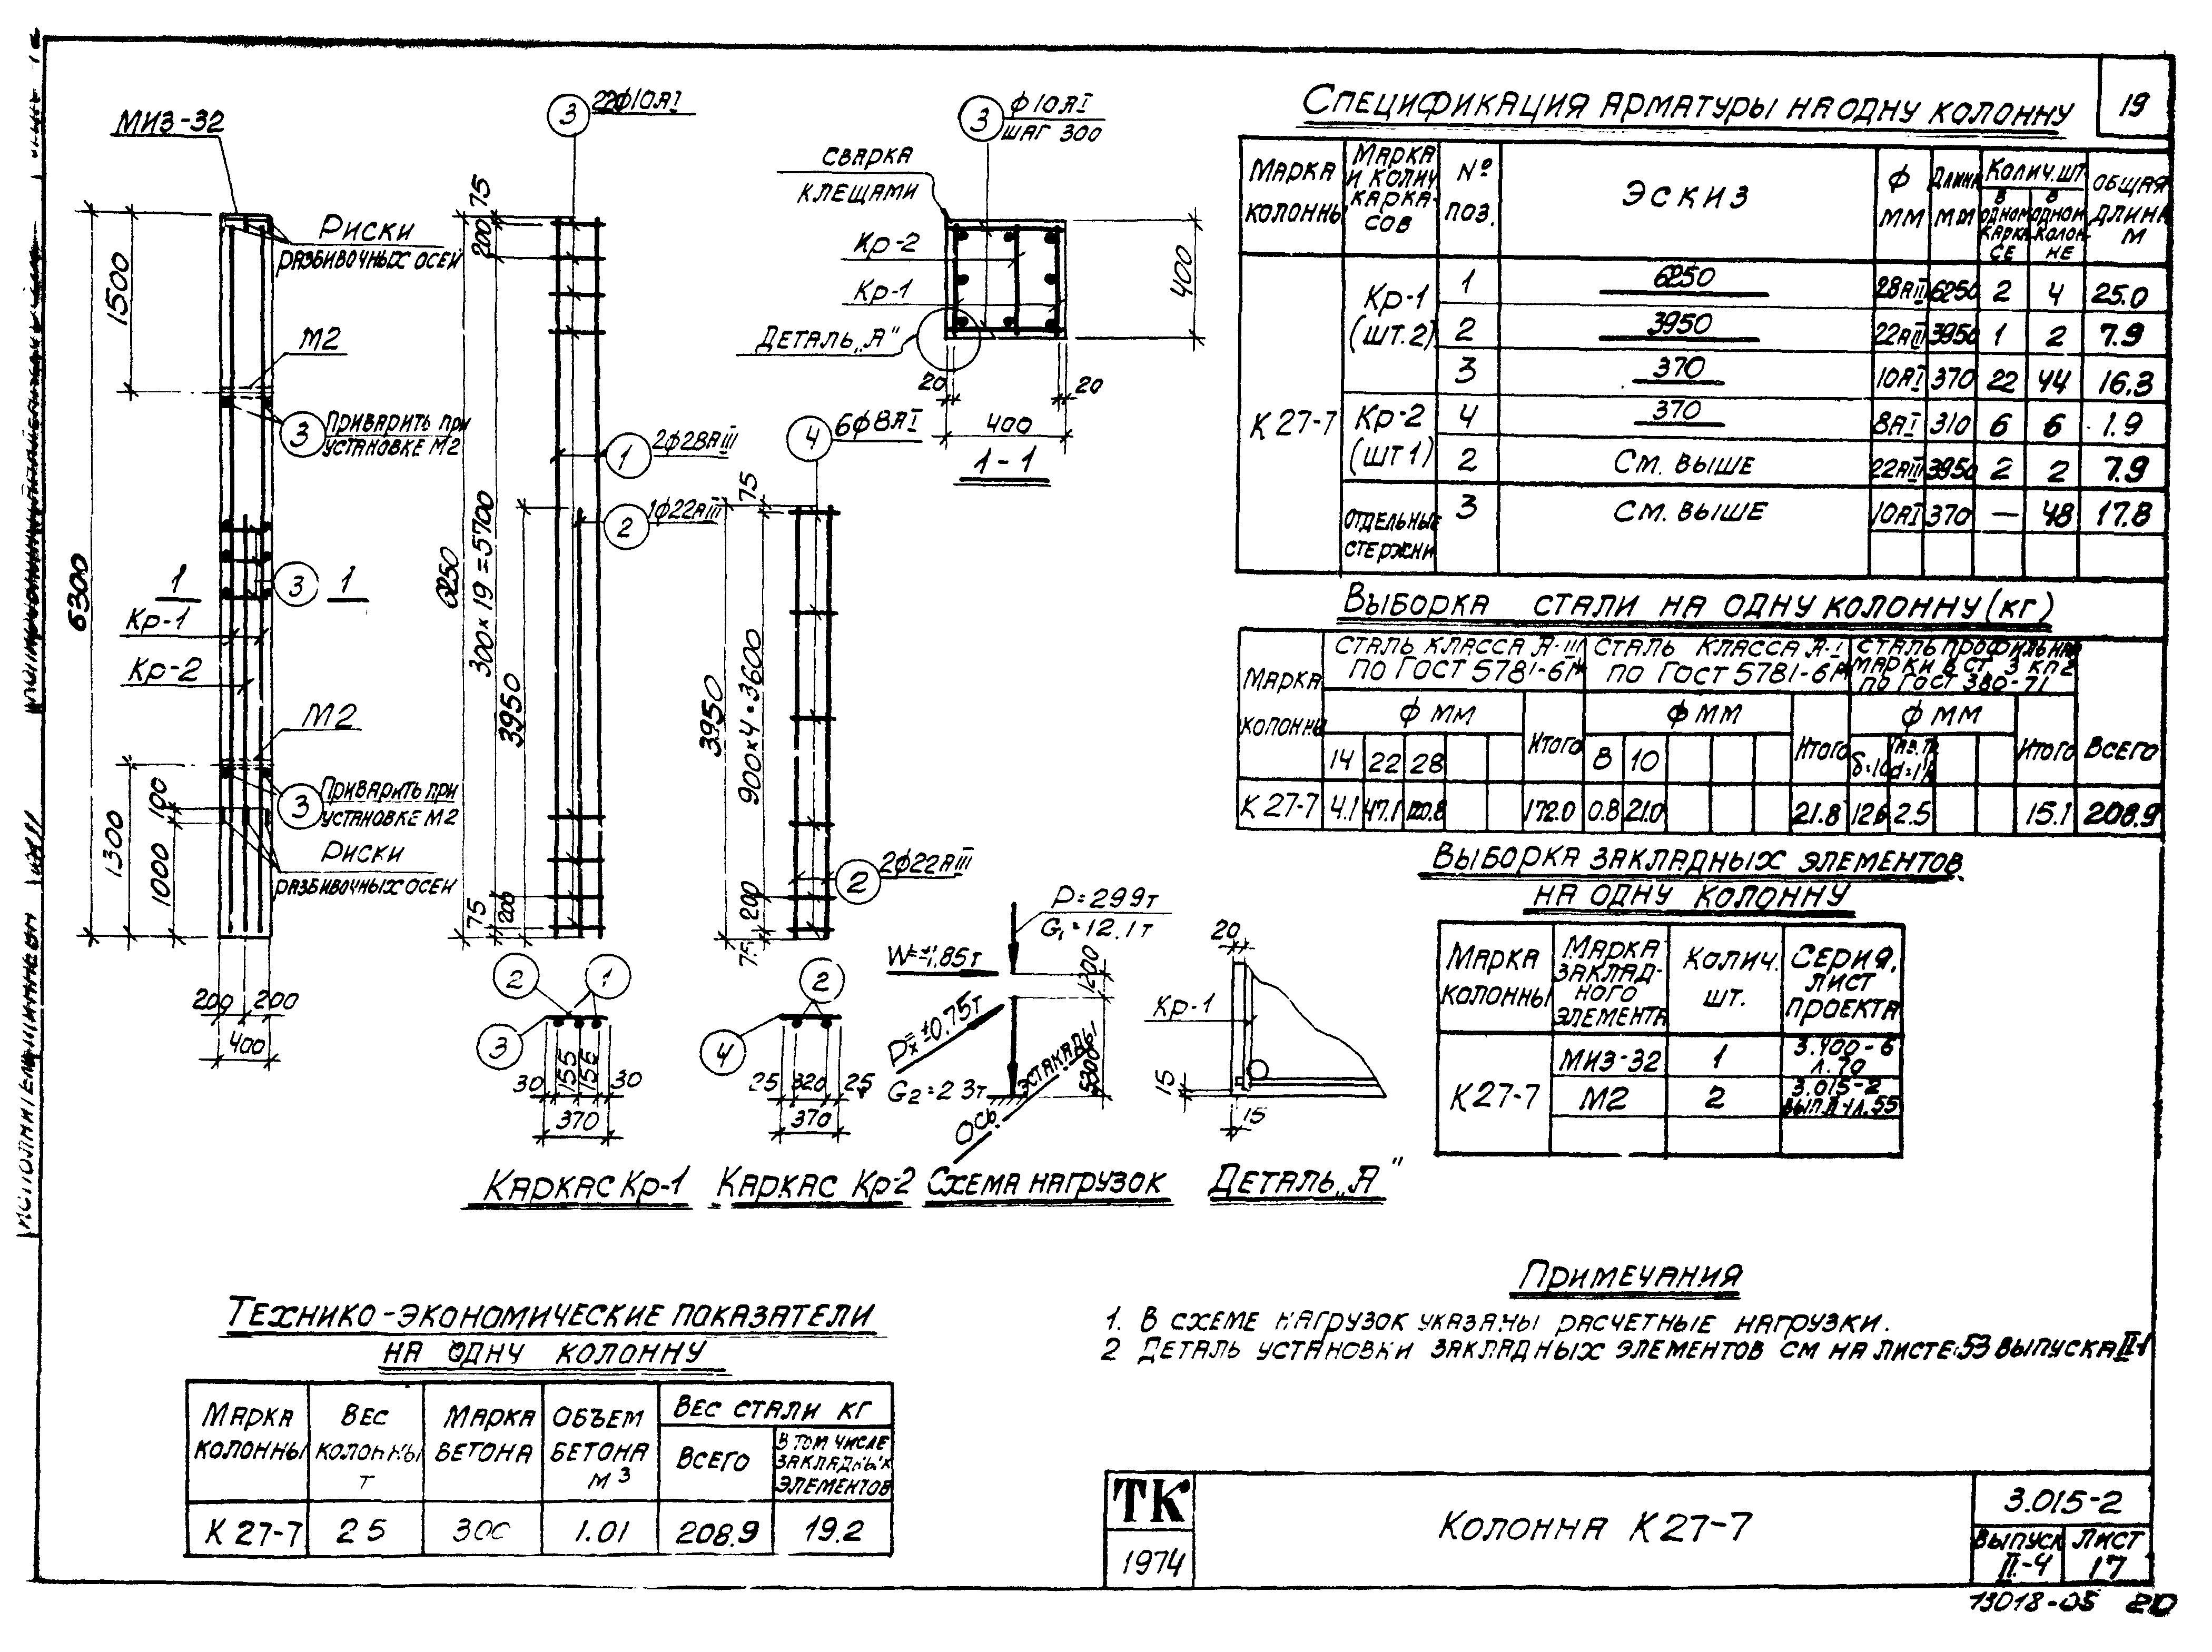 19
МИЗ-32
Риски
разбивочных осей
1500
М2
3
Приварить при
установке М2
6300
1
3
1
Кр-1
Кр-2
М2
3
Приварить при
установке М2
100
1300
1000
Риски
разбивочных осей
200
200
400
3
22ф10АI
75
200
1
2ф28АIII
2
1ф22АIII
6250
300×19=5700
3950
75
200
2
1
3
30
155
155
30
370
Каркас Кр-1
4
6ф8АI
75
3950
900×4=3600
200
75
2
2ф22АIII
2
4
25
320
25
370
Каркас Кр-2
3
ф10АI
шаг 300
сварка
клещами
Кр-2
Кр-1
Деталь „А"
400
20
20
400
1-1
P=29.9т
G₁=12.1т
W=±1.85т
1200
Pх=±0.75т
G₂=2.3т
5300
Ось эстакады
Схема нагрузок
20
Кр-1
15
15
Деталь „А"
Спецификация арматуры на одну колонну
Марка колонны
Марка и колич каркасов
№ поз.
Эскиз
ф мм
Длина мм
Колич. шт
в одном каркасе
в одной колонне
Общая длина м
К 27-7
Кр-1 (шт.2)
1 6250 28АIII 6250 2 4 25.0
2 3950 22АIII 3950 1 2 7.9
3 370 10АI 370 22 44 16.3
Кр-2 (шт 1)
4 370 8АI 310 6 6 1.9
2 См. выше 22АIII 3950 2 2 7.9
Отдельные стержни
3 См. выше 10АI 370 — 48 17.8
Выборка стали на одну колонну (кг)
Марка колонны
Сталь класса А-III по ГОСТ 5781-61*
Сталь класса А-I по ГОСТ 5781-61*
Сталь профильная марки В Ст. 3 кп2 по ГОСТ 380-71
Всего
ф мм
Итого
ф мм
Итого
ф мм
Итого
14 22 28
8 10
δ=10
К 27-7 4.1 47.1 120.8 172.0 0.8 21.0 21.8 12.6 2.5 15.1 208.9
Выборка закладных элементов
на одну колонну
Марка колонны
Марка закладного элемента
Колич. шт.
Серия, лист проекта
К 27-7
МИЗ-32 1 3.400-6 л. 70
М2 2 3.015-2 вып. II-1 л. 55
Примечания
1. В схеме нагрузок указаны расчетные нагрузки.
2 Деталь установки закладных элементов см на листе 53 выпуска II-1
Технико-экономические показатели
на одну колонну
Марка колонны
Вес колонны т
Марка бетона
Объем бетона м³
Вес стали кг
Всего
в том числе закладных элементов
К 27-7 2.5 300 1.01 208.9 19.2
ТК
1974
Колонна К 27-7
3.015-2
Выпуск II-4
Лист 17
13018-05 20